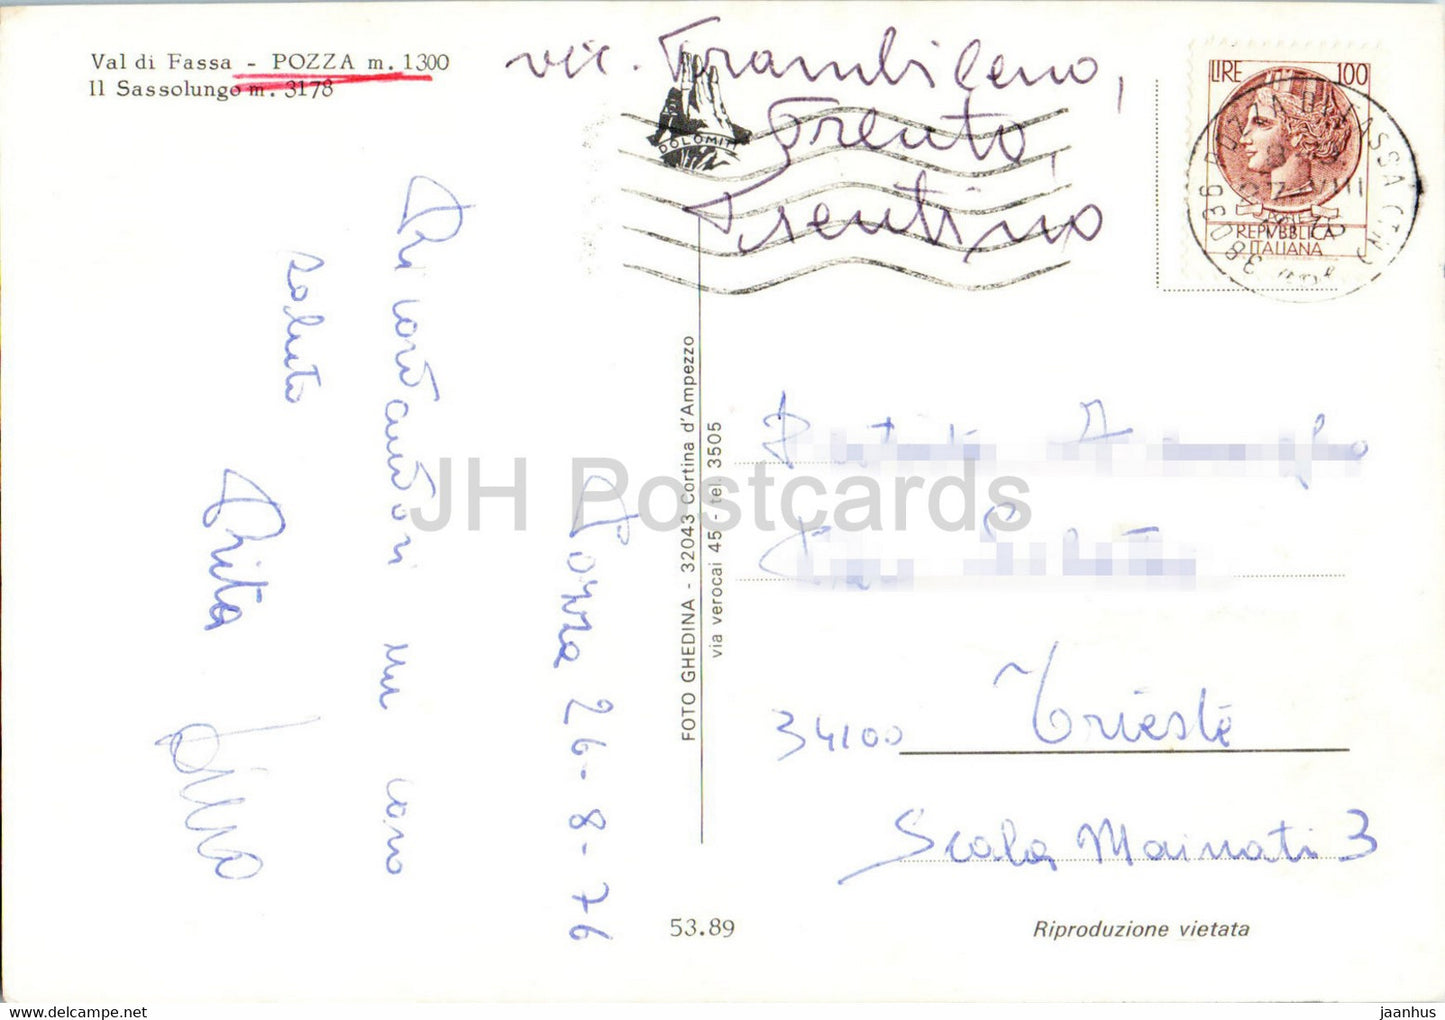 Val di Fassa - POZZA m. 1300
Il Sassolungo m. 3178
vic. Trambileno,
Trento,
Trentino
DOLOMITI
LIRE 100
REPVBBLICA
ITALIANA
38036 POZZA DI FASSA (TN)
Ricordandoti un caro
saluto
Rita
Pozza 26-8-76
FOTO GHEDINA - 32043 Cortina d'Ampezzo
via verocai 45 - tel. 3505
JH Postcards
34100 Trieste
Scala Mainati 3
53.89
Riproduzione vietata
https://www.jaanhus.com
jaanhus